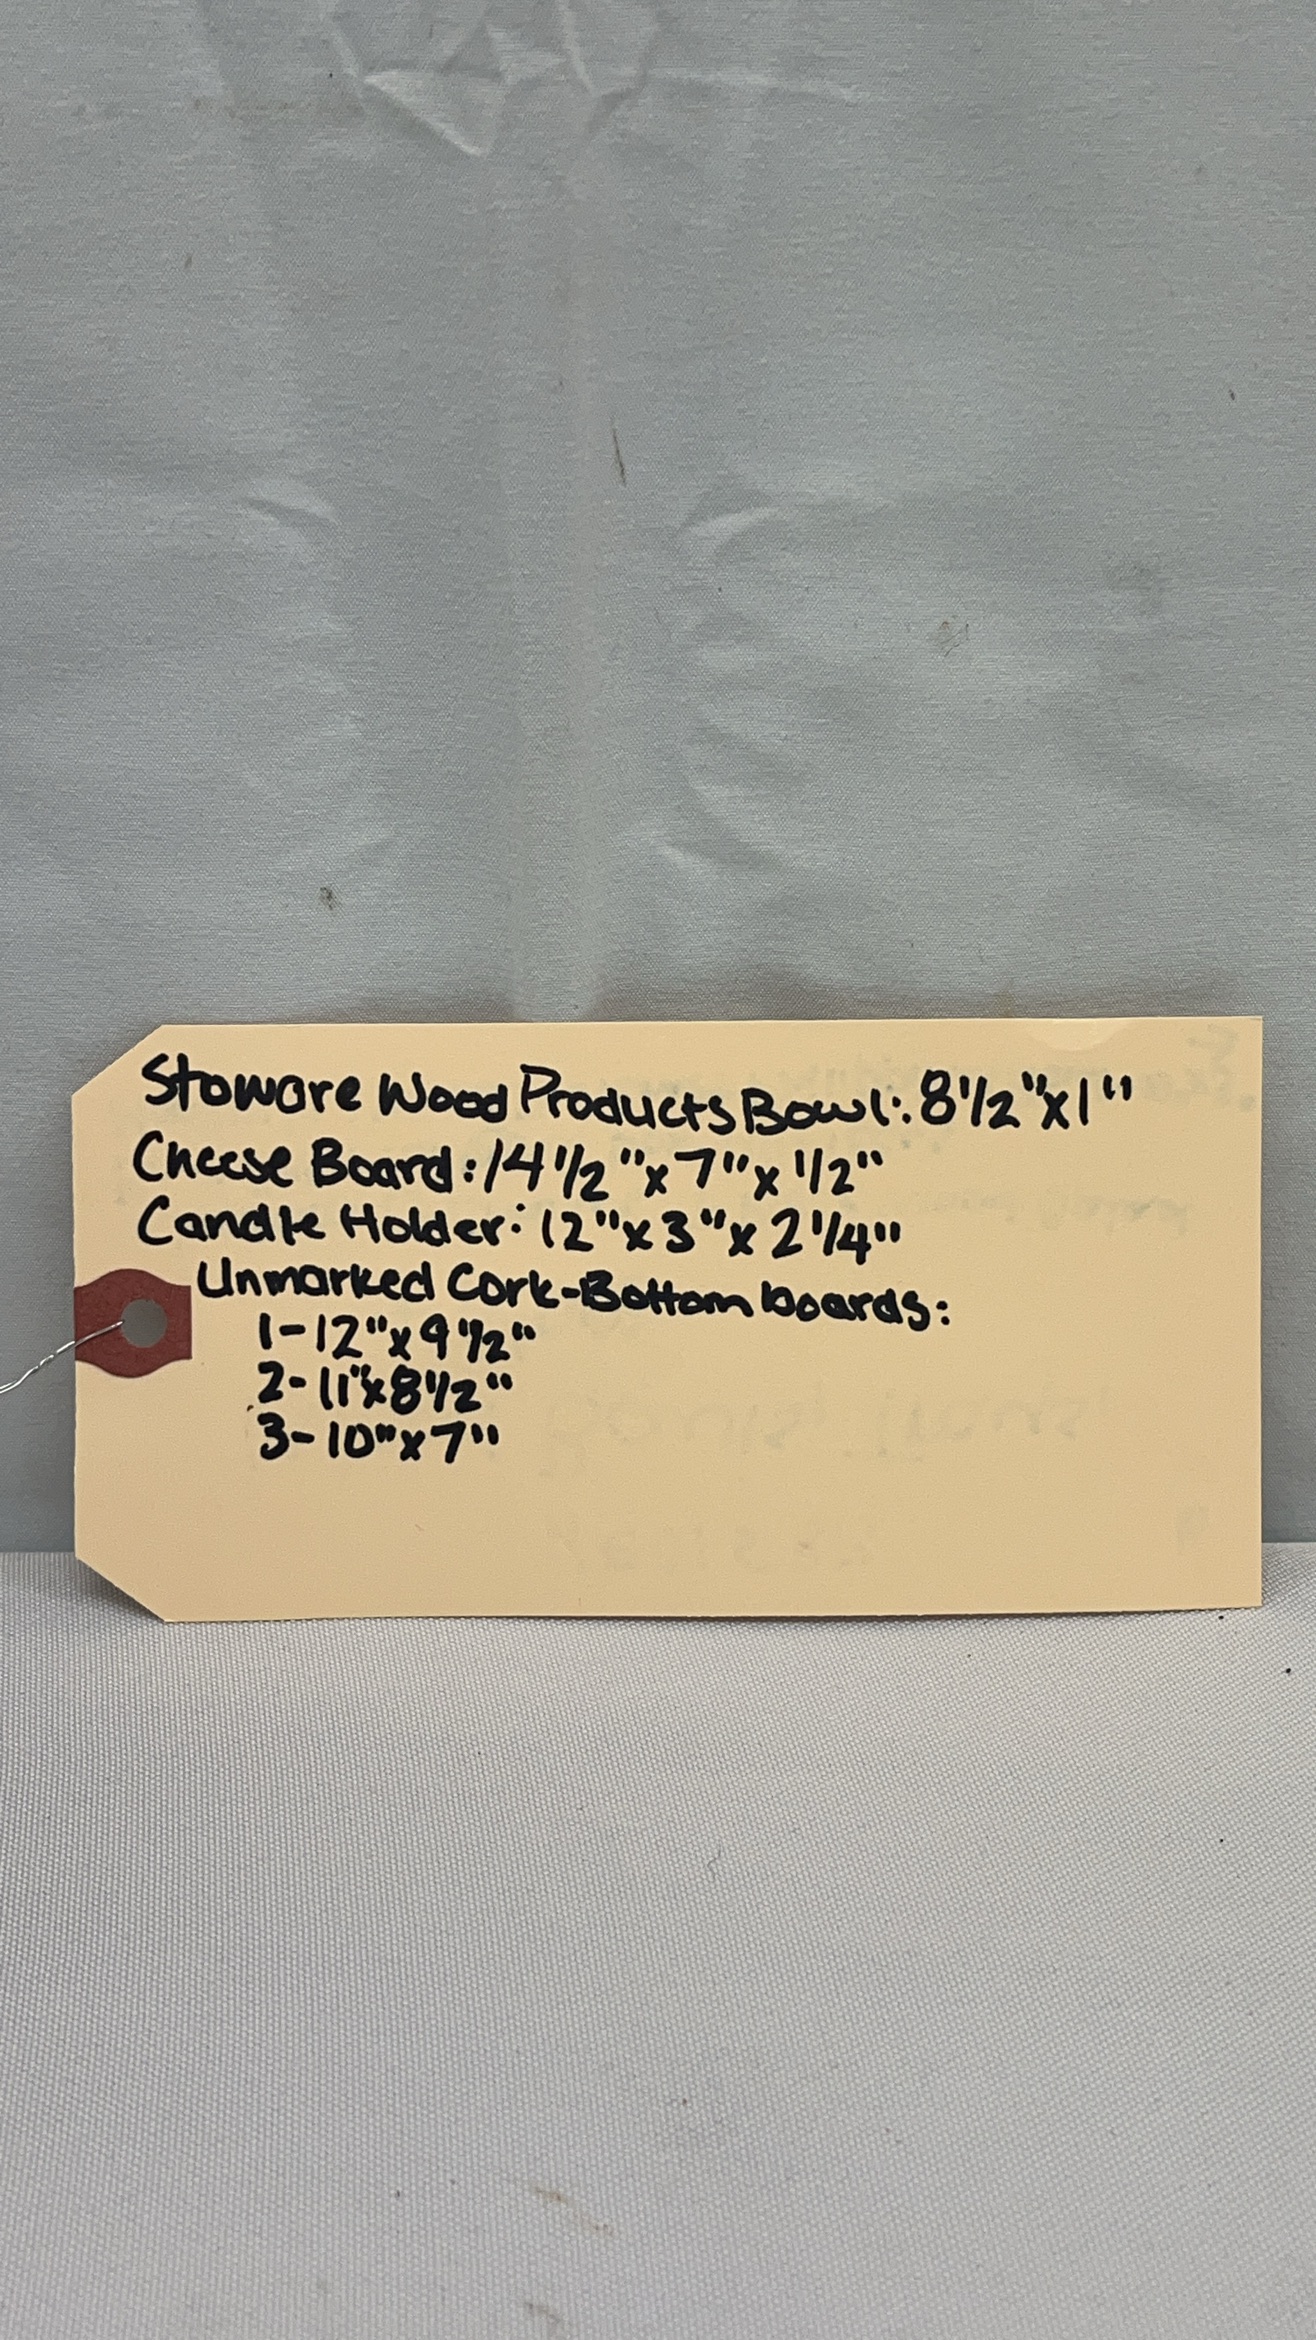 Stoware Wood Products Bowl: 8 1/2" x 1"
Cheese Board: 14 1/2" x 7" x 1/2"
Candle Holder: 12" x 3" x 2 1/4"
Unmarked Cork-Bottom boards:
1- 12" x 9 1/2"
2- 11" x 8 1/2"
3- 10" x 7"